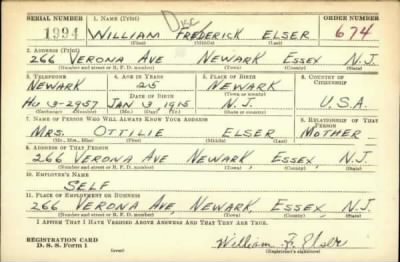 SERIAL NUMBER 1. NAME (Print) ORDER NUMBER
1994 WILLIAM FREDERICK ELSER 674
(First) (Middle) (Last)
2. ADDRESS (Print)
266 VERONA AVE NEWARK ESSEX N.J.
(Number and street or R. F. D. number) (Town) (County) (State)
3. TELEPHONE 4. AGE IN YEARS 5. PLACE OF BIRTH 6. COUNTRY OF CITIZENSHIP
NEWARK 25 NEWARK
DATE OF BIRTH (Town or county)
HU 3-2957 JAN 3 1915 N.J. U.S.A.
(Exchange) (Number) (Mo.) (Day) (Yr.) (State or country)
7. NAME OF PERSON WHO WILL ALWAYS KNOW YOUR ADDRESS 8. RELATIONSHIP OF THAT PERSON
MRS. OTTILIE ELSER MOTHER
(Mr., Mrs., Miss) (First) (Middle) (Last)
9. ADDRESS OF THAT PERSON
266 VERONA AVE, NEWARK, ESSEX, N.J.
(Number and street or R. F. D. number) (Town) (County) (State)
10. EMPLOYER'S NAME
SELF
11. PLACE OF EMPLOYMENT OR BUSINESS
266 VERONA AVE, NEWARK, ESSEX, N.J.
(Number and street or R. F. D. number) (Town) (County) (State)
I AFFIRM THAT I HAVE VERIFIED ABOVE ANSWERS AND THAT THEY ARE TRUE.
REGISTRATION CARD
D. S. S. Form 1 William F. Elser
(over) (Registrant's signature)